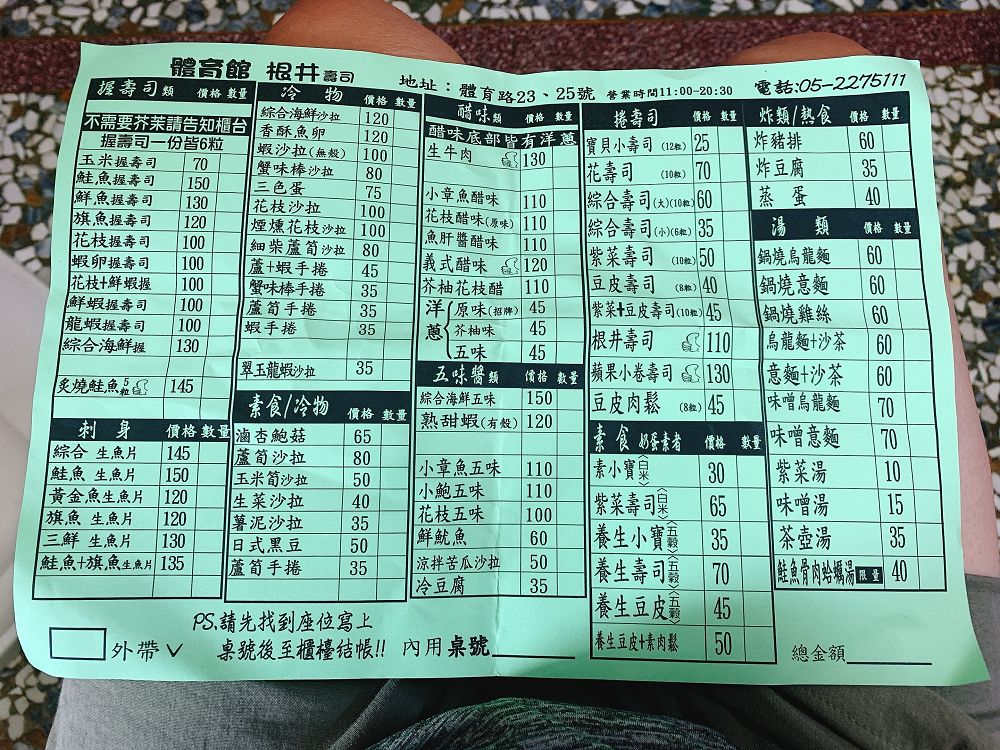 體育館 根井 壽司
地址：體育路23、25號 營業時間11:00-20:30 電話:05-2275111
握壽司類 價格 數量
不需要芥茉請告知櫃台
握壽司一份皆6粒
玉米握壽司 70
鮭魚握壽司 150
鮮魚握壽司 130
旗魚握壽司 120
花枝握壽司 100
蝦卵握壽司 100
花枝+鮮蝦握 100
鮮蝦握壽司 100
龍蝦握壽司 100
綜合海鮮握 130
炙燒鮭魚5粒 145
刺身 價格 數量
綜合 生魚片 145
鮭魚 生魚片 150
黃金魚生魚片 120
旗魚 生魚片 120
三鮮 生魚片 130
鮭魚+旗魚生魚片 135
冷物 價格 數量
綜合海鮮沙拉 120
香酥魚卵 120
蝦沙拉(無殼) 100
蟹味棒沙拉 80
三色蛋 75
花枝沙拉 100
煙燻花枝沙拉 100
細柴蘆筍沙拉 80
蘆+蝦手捲 45
蟹味棒手捲 35
蘆筍手捲 35
蝦手捲 35
翠玉龍蝦沙拉 35
素食/冷物 價格 數量
滷杏鮑菇 65
蘆筍沙拉 80
玉米筍沙拉 50
生菜沙拉 40
薯泥沙拉 35
日式黑豆 50
蘆筍手捲 35
醋味類 價格 數量
醋味底部皆有洋蔥
生牛肉 130
小章魚醋味 110
花枝醋味(原味) 110
魚肝醬醋味 110
義式醋味 120
芥柚花枝醋 110
洋蔥
原味(招牌) 45
芥柚味 45
五味 45
五味醬類 價格 數量
綜合海鮮五味 150
熟甜蝦(有殼) 120
小章魚五味 110
小鮑五味 110
花枝五味 100
鮮魷魚 60
涼拌苦瓜沙拉 50
冷豆腐 35
捲壽司 價格 數量
寶貝小壽司 (12粒) 25
花壽司 (10粒) 70
綜合壽司(大)(10粒) 60
綜合壽司(小)(6粒) 35
紫菜壽司 (10粒) 50
豆皮壽司 (8粒) 40
紫菜+豆皮壽司(10粒) 45
根井壽司 110
蘋果小卷壽司 130
豆皮肉鬆 (8粒) 45
素食 奶蛋素者 價格 數量
素小寶〈白米〉 30
紫菜壽司〈白米〉 65
養生小寶〈五穀〉 35
養生壽司〈五穀〉 70
養生豆皮〈五穀〉 45
養生豆皮+素肉鬆 50
炸類/熱食 價格 數量
炸豬排 60
炸豆腐 35
蒸蛋 40
湯類 價格 數量
鍋燒烏龍麵 60
鍋燒意麵 60
鍋燒雞絲 60
烏龍麵+沙茶 60
意麵+沙茶 60
味噌烏龍麵 70
味噌意麵 70
紫菜湯 10
味噌湯 15
茶壺湯 35
鮭魚骨肉蛤蠣湯 限量 40
PS.請先找到座位寫上
桌號後至櫃檯結帳!!
外帶∨
內用 桌號
總金額